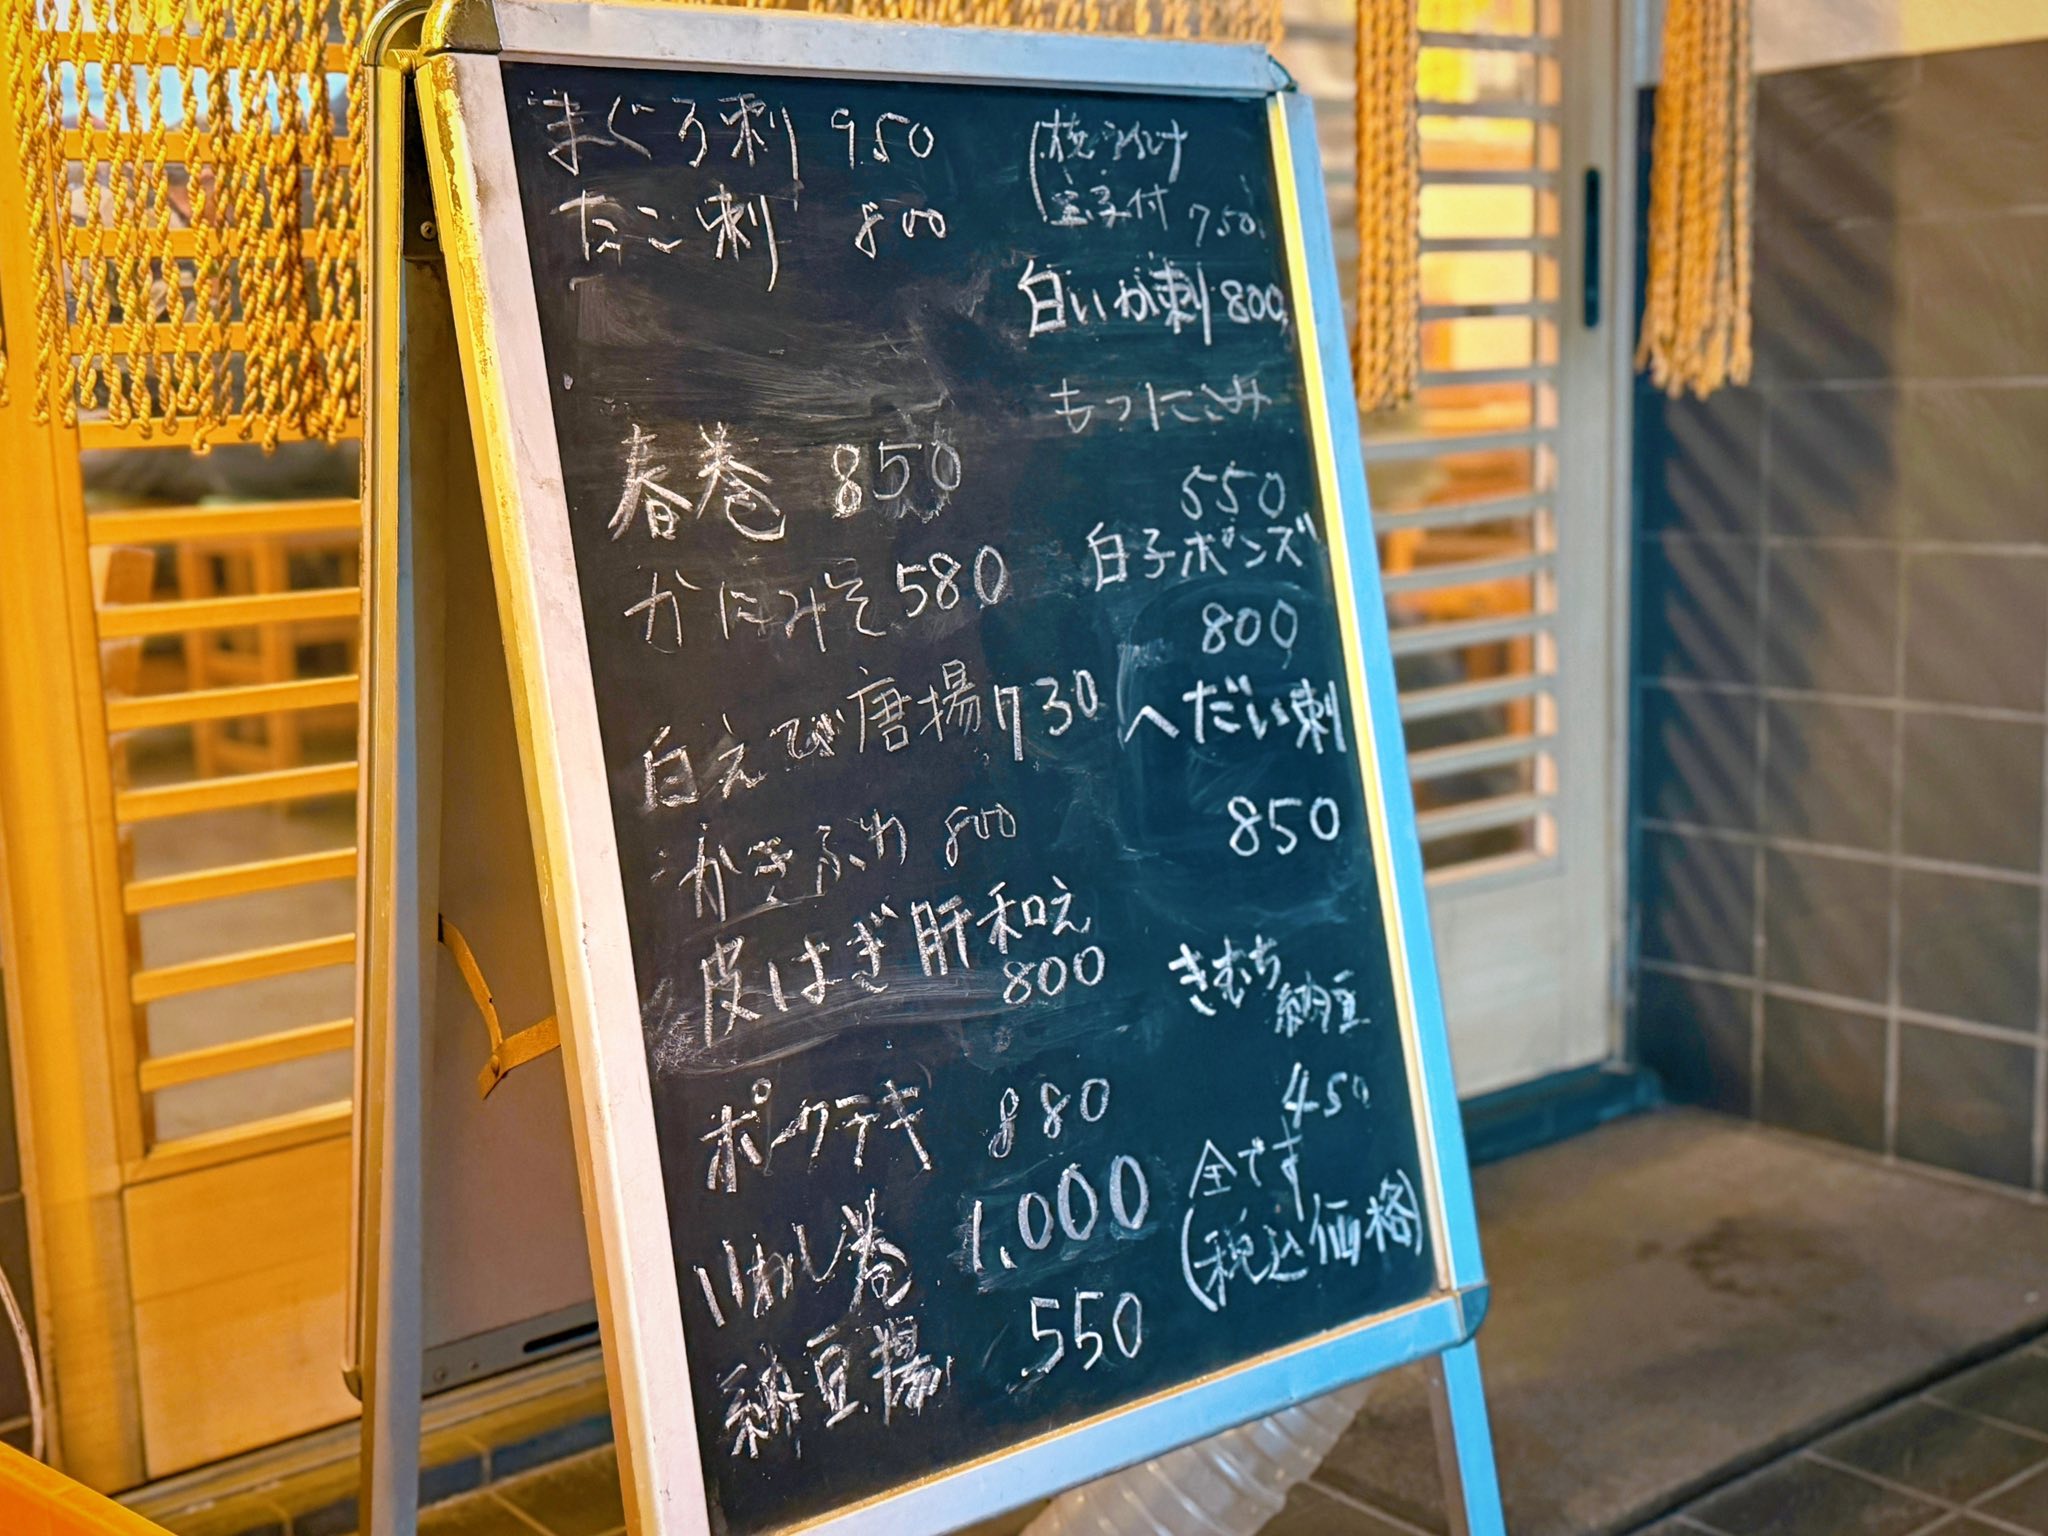 まぐろ刺 950
たこ刺 800
春巻 850
かにみそ 580
白えび唐揚 730
かきふわ 800
皮はぎ肝和え
800
ポークテキ 880
いわし巻 1,000
納豆揚 550
付 750
白いか刺 800
もつにこみ
550
白子ポンズ
800
へだい刺
850
きむち
納豆
450
全てす
(税込価格)